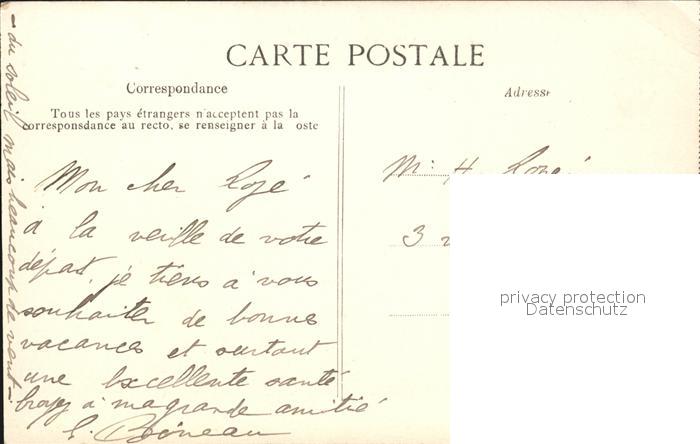 CARTE POSTALE
Correspondance
Adresse
Tous les pays étrangers n'acceptent pas la
corresponsdance au recto, se renseigner à la oste
Mon cher Logé
à la veille de votre
départ, je tiens à vous
souhaiter de bonnes
vacances et surtout
une excellente santé
à ma grande amitié
- du soleil mais beaucoup de vent -
Mr H. Logé
3
privacy protection
Datenschutz